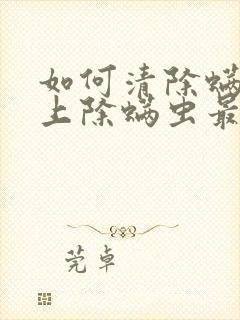 如何清除螨
上除螨虫最
莞卓